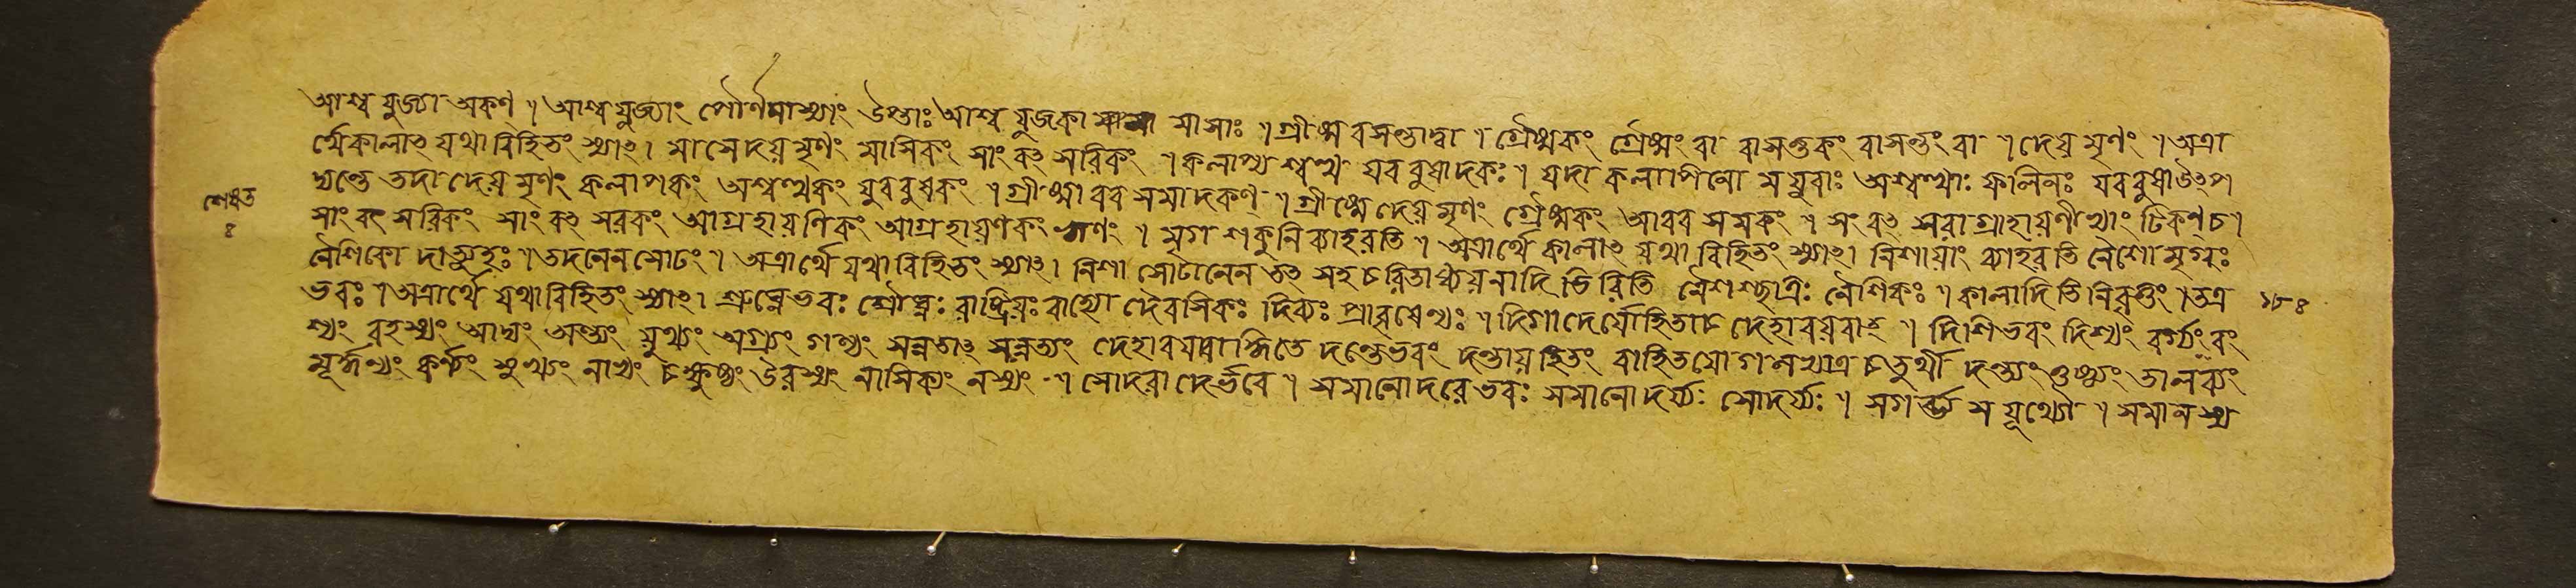 আশ্বযুজ্যা অকণ্ । আশ্বযুজ্যাং পৌর্ণমাস্যাং উপ্তাঃ আশ্বযুজকা মাষা মাসাঃ । গ্রীষ্মবসন্তাদ্বা । গ্রৈষ্মকং গ্রৈষ্মং বা বাসন্তকং বাসন্তং বা । দেয়মৃণং । অত্রা
র্থে কালাৎ যথাবিহিতং স্যাৎ । মাসে দেয়মৃণং মাসিকং সাংবৎসরিকং । কলাপ্যশ্বত্থ যববুষাদকঃ । যদা কলাপিনো ময়ুরাঃ অশ্বত্থাঃ ফলিনঃ যববুষা উৎপ
দ্যন্তে তদা দেয়মৃণং কলাপকং অশ্বত্থকং যববুষকং । গ্রীষ্মাবরসমাদকণ্ । গ্রীষ্মে দেয়মৃণং গ্রৈষ্মকং আবরসমকং । সংবৎসরাগ্রহায়ণীভ্যাং টিকণ্চ ।
সাংবৎসরিকং সাংবৎসরকং আগ্রহায়ণিকং আগ্রহায়ণকং ঋণং । মৃগশকুনি ব্যাহরতি । অত্রার্থে কালাৎ যথাবিহিতং স্যাৎ । নিশায়াং ব্যাহরতি নৈশো মৃগঃ
নৈশিকো দাত্যুহঃ । তদনেন সোঢং । অত্রার্থে যথাবিহিতং স্যাৎ । নিশা সোঢানেন তৎসহচরিতাধ্যয়নাদিভিরিতি নৈশশ্ছাত্রঃ নৈশিকঃ । কালাদিতি নিবৃত্তং । তত্র
ভবঃ । অত্রার্থে যথাবিহিতং স্যাৎ । স্রুঘ্নে ভবঃ স্রৌঘ্নঃ রাষ্ট্রিয়ঃ বাহ্যো দৈবসিকঃ দিব্যঃ প্রাবৃষেণ্যঃ । দিগাদের্যো হিতাচ্চ দেহাবয়বাৎ । দিশি ভবং দিশ্যং বর্গ্যং বং
শ্যং রহস্যং আদ্যং অন্ত্যং যূথ্যং অগ্র্যং গণ্যং দেহাবয়বাদ্ধিতে দন্তে ভবং দন্তায় হিতং বা হিতযোগলভ্যাত্র চতুর্থী দন্ত্যং ওষ্ঠ্যং তালব্যং
মূর্দ্ধন্যং কর্ণ্যং মুখ্যং নাভ্যং চক্ষুষ্যং উরস্যং নাসিক্যং নস্যং । সোদরাদের্ভবে । সমানোদরে ভবঃ সমানোদর্য্যঃ সোদর্য্যঃ । সগর্ভ্য সযূথ্যৌ । সমানস্য
১৮৪